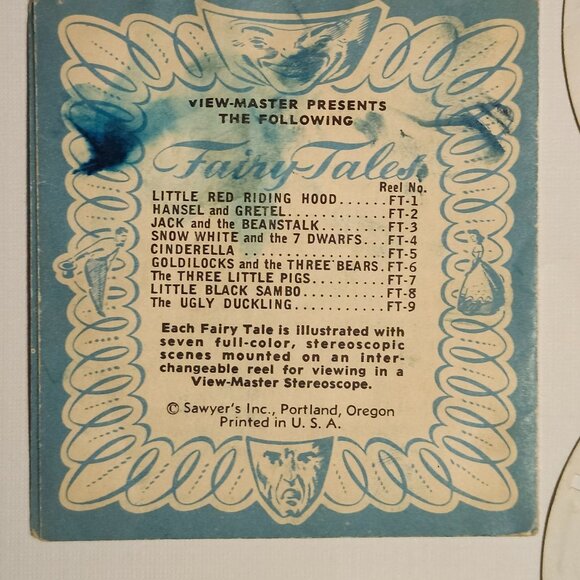 VIEW-MASTER PRESENTS
THE FOLLOWING
Fairy Tales
Reel No.
LITTLE RED RIDING HOOD......FT-1
HANSEL and GRETEL............FT-2
JACK and the BEANSTALK.......FT-3
SNOW WHITE and the 7 DWARFS...FT-4
CINDERELLA...................FT-5
GOLDILOCKS and the THREE BEARS.FT-6
The THREE LITTLE PIGS.........FT-7
LITTLE BLACK SAMBO...........FT-8
The UGLY DUCKLING............FT-9
Each Fairy Tale is illustrated with
seven full-color, stereoscopic
scenes mounted on an inter-
changeable reel for viewing in a
View-Master Stereoscope.
© Sawyer's Inc., Portland, Oregon
Printed in U. S. A.